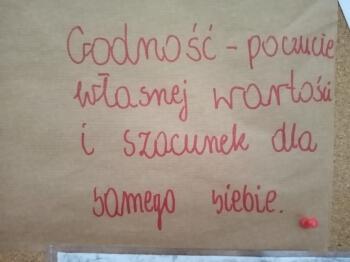 Godność - poczucie
własnej wartości
i szacunek dla
samego siebie.